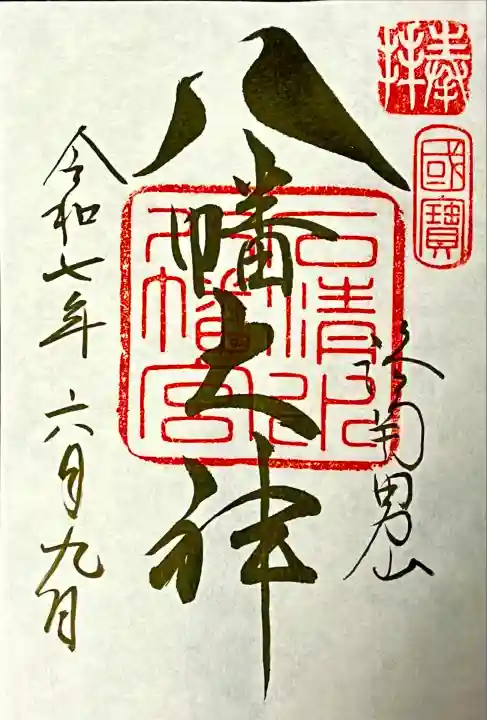 奉拝
國寶
洛南男山
石清水
八幡宮
八幡大神
令和七年 六月九日